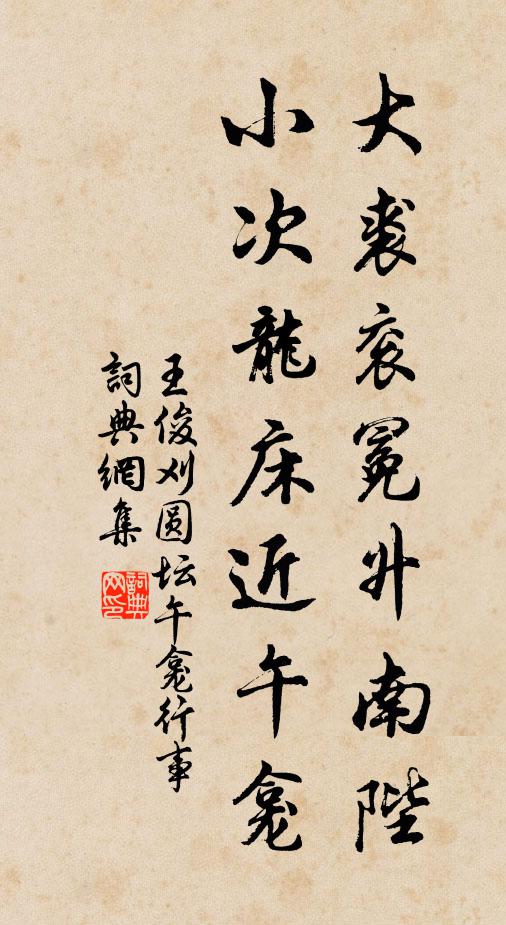 大裘衮冕升南陛
小次龍床近午龛
王俊刈圆坛午龛行事
詞典網集
詞典网印